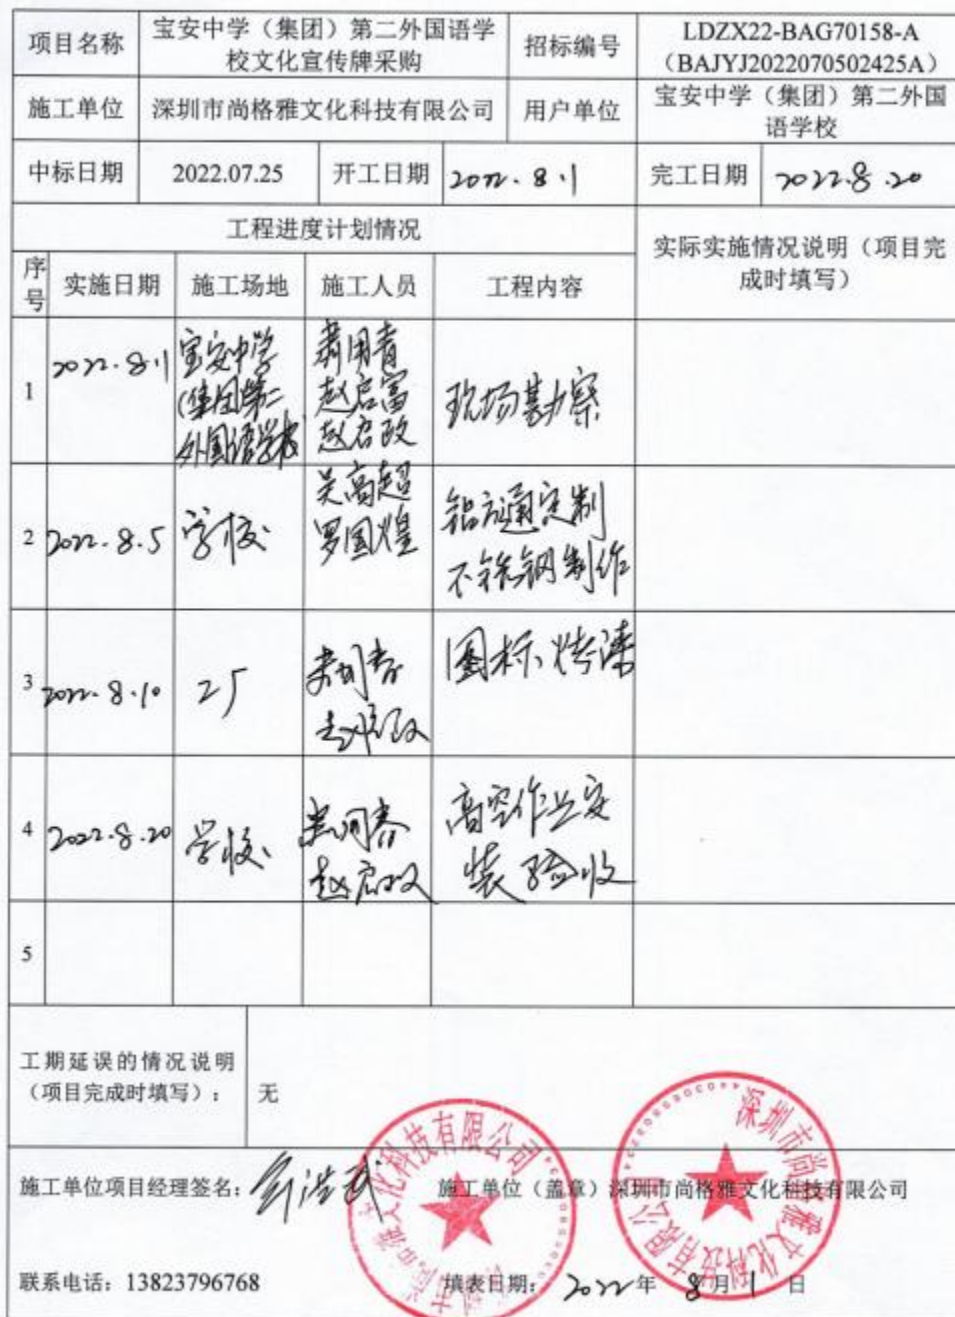 项目名称
宝安中学（集团）第二外国语学
校文化宣传牌采购
招标编号
LDZX22-BAG70158-A
（BAJYJ2022070502425A）
施工单位
深圳市尚格雅文化科技有限公司
用户单位
宝安中学（集团）第二外国
语学校
中标日期
2022.07.25
开工日期
2022.8.1
完工日期
2022.8.20
工程进度计划情况
实际实施情况说明（项目完
成时填写）
序
号
实施日期
施工场地
施工人员
工程内容
1
2022.8.1
宝安中学
(集团第二
外国语学校
赵启富
赵启政
现场勘察
2
2022.8.5
学校
吴高超
罗国煌
铝方通定制
不锈钢制作
3
2022.8.10
工厂
赵启政
图标烤漆
4
2022.8.20
学校
赵启政
高空作业安
装验收
5
工期延误的情况说明
（项目完成时填写）：
无
施工单位项目经理签名：
施工单位（盖章）深圳市尚格雅文化科技有限公司
联系电话：13823796768
填表日期：2022年 8月 1 日
深圳市尚格雅文化科技有限公司